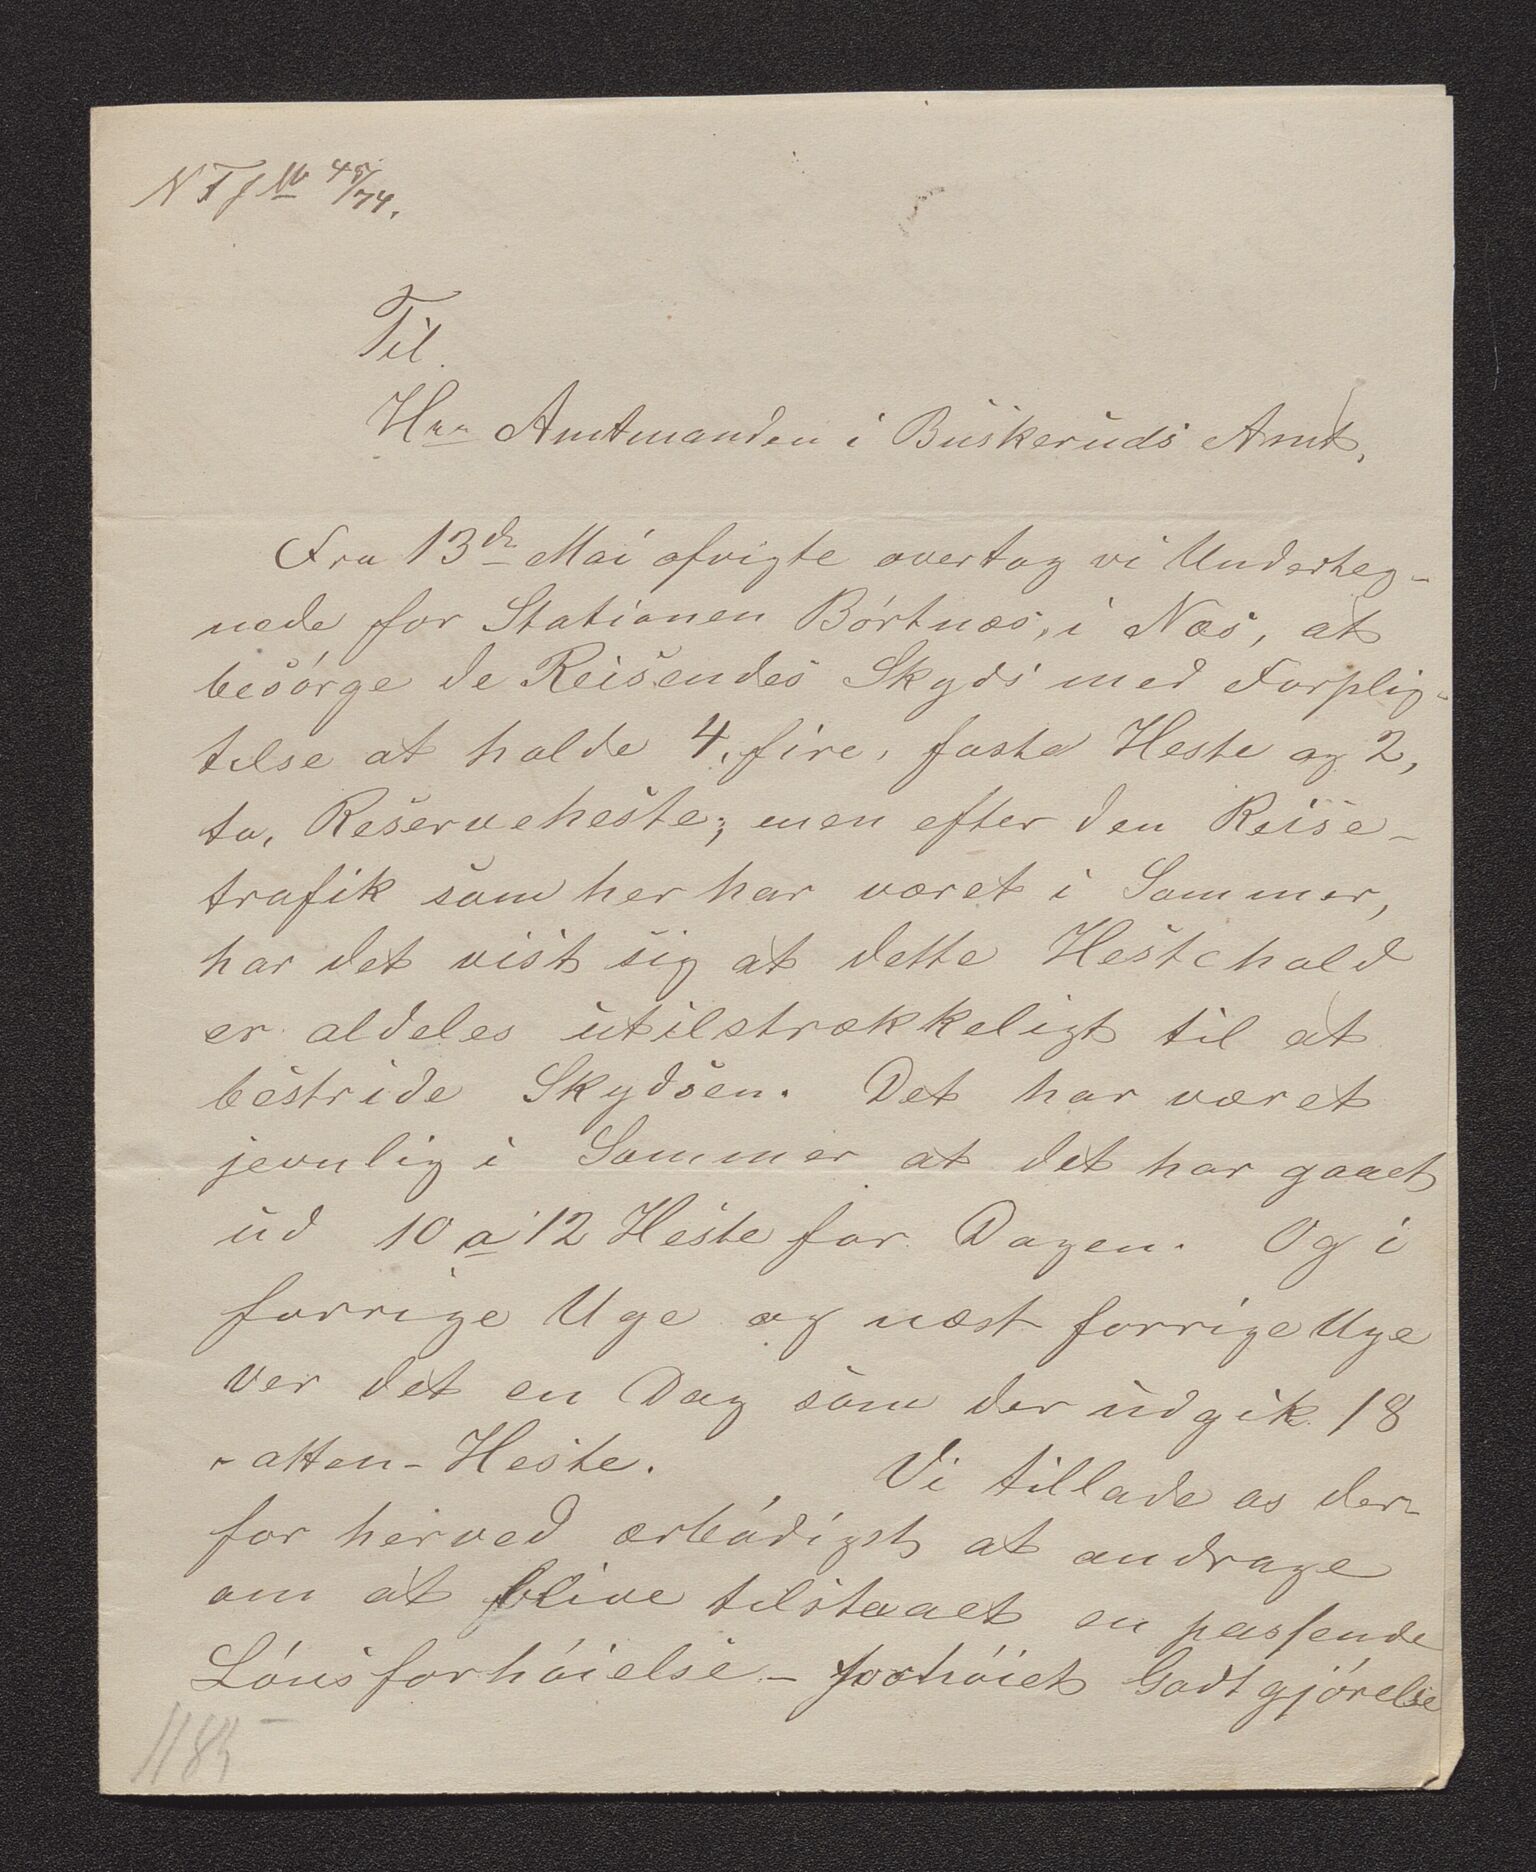 Til
Hrr Amtmanden i Buskeruds Amt,
Fra 13de Mai afvigte overtog vi Underteg-
nede for Stationen Börtnæs, i Næs, at
besórge de Reisendes Skyds med Forplig-
telse at holde 4, fire, faste Heste og 2,
to, Reserveheste; men efter den Reise-
trafik som her har været i Sommer,
har det vist sig at dette Hestehold
er aldeles utilstrækkeligt til at
bestride Skydsen. Det har været
jevnlig i Sommer at det har gaaet
ud 10 a 12 Heste for Dagen. Og i
forrige Uge og næst forrige Uge
ver det en Dag som der udgik 18
- atten - Heste. Vi tillade os der-
for herved ærbódigst at andrage
om at blive tilstaaet en passende
Lónsforhóielse - forhóiet Godtgjórelse
1185